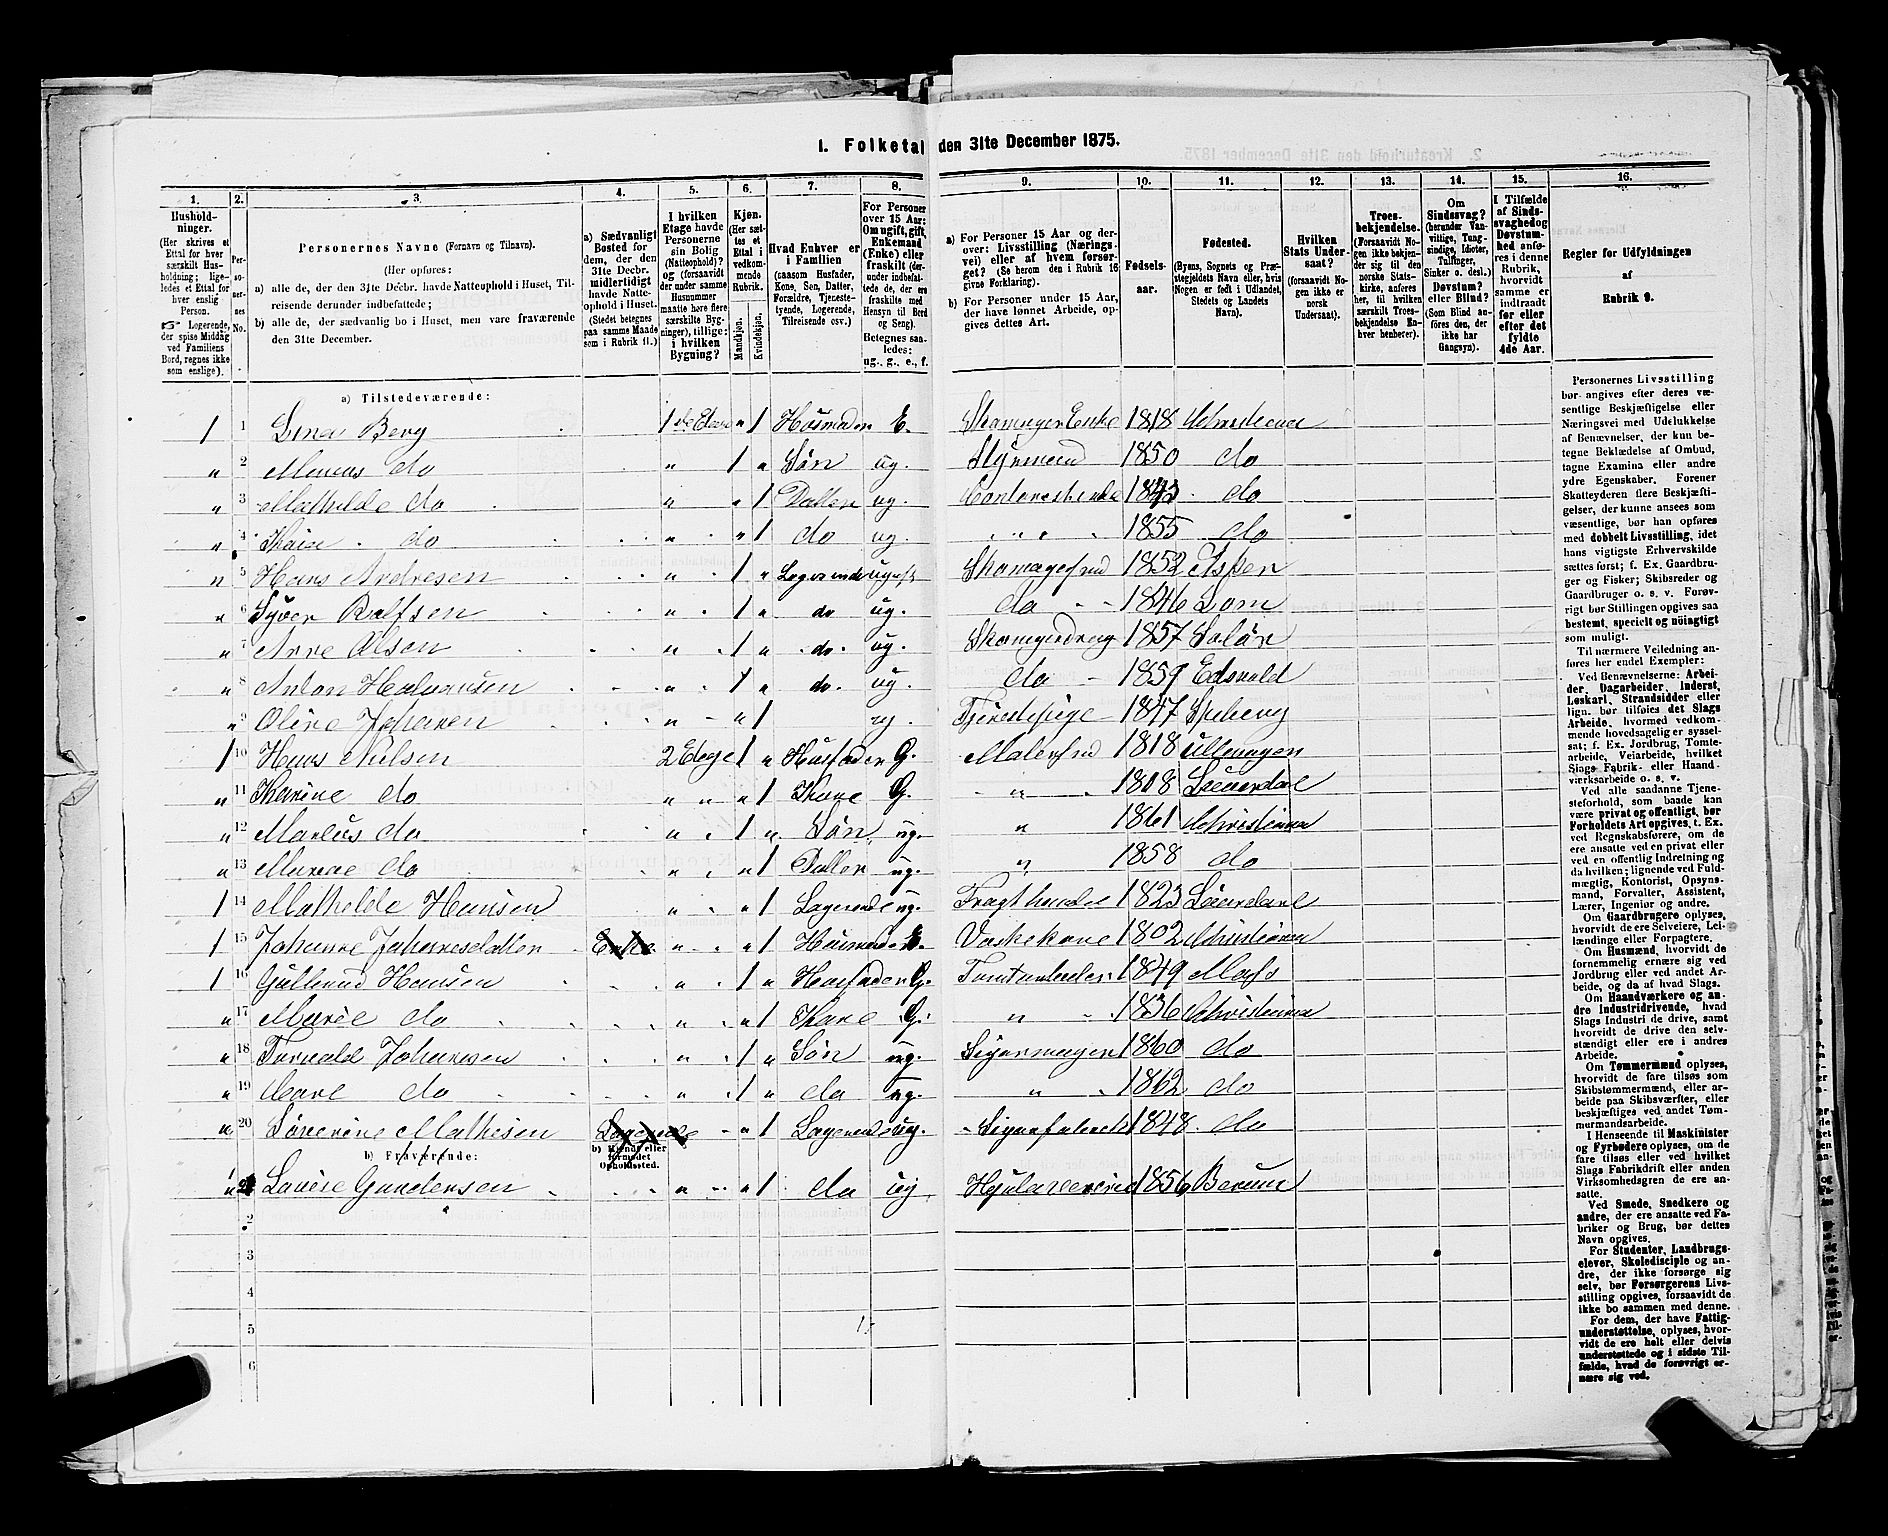 1. Folketal den 31te December 1875.
1. 2. 3. 4. 5. 6. 7. 8. 9. 10. 11. 12. 13. 14. 15. 16.
Husholdninger. (Her skrives et Ettal for hver særskilt Husholdning; ligeledes et Ettal for hver enslig Person. Logerende, der spise Middag ved Familiens Bord, regnes ikke som enslige).
Personernes No.
Personernes Navne (Fornavn og Tilnavn).
(Her opføres:
a) alle de, der den 31te Decbr. havde Natteophold i Huset, Tilreisende derunder indbefattede;
b) alle de, der sædvanlig bo i Huset, men vare fraværende den 31te December.
a) Sædvanligt Bosted for dem, der den 31te Decbr. midlertidigt havde Natteophold i Huset. (Stedet betegnes paa samme Maade som i Rubrik 11.)
I hvilken Etage havde Personerne sin Bolig (Natteophold)? og (forsaavidt der under samme Husnummer maatte høre flere særskilte Bygninger), tillige: i hvilken Bygning?
Kjøn. (Her sættes et Ettal i vedkommende Rubrik. Mandkjøn. Kvindekjøn.
Hvad Enhver er i Familien (saasom Husfader, Kone, Søn, Datter, Forældre, Tjenestetyende, Logerende, Tilreisende osv.)
For Personer over 15 Aar: Om ugift, gift, Enkemand (Enke) eller fraskilt (derunder indbefattede de, der ere fraskilte med Hensyn til Bord og Seng). Betegnes saaledes: ug., g., e., f.
a) For Personer 15 Aar og derover: Livsstilling (Næringsvei) eller af hvem forsørget? (Se herom den i Rubrik 16 givne Forklaring).
b) For Personer under 15 Aar, der have lønnet Arbeide, opgives dettes Art.
Fødselsaar.
Fødested. (Byens, Sognets og Præstegjeldets Navn eller, hvis Nogen er født i Udlandet, Stedets og Landets Navn).
Hvilken Stats Undersaat? (forsaavidt Nogen ikke er norsk Undersaat).
Troesbekjendelse. (Forsaavidt Nogen ikke bekjender sig til den norske Statskirke, anføres her, til hvilken særskilt Troesbekjendelse Enhver henhører).
Om Sindssvag? (herunder Vanvittige, Tungsindige, Idioter, Tullinger, Sinker o. desl.) Døvstum? eller Blind? (Som Blind anføres den, der ikke har Gangsyn).
I Tilfælde af Sindssvaghed og Døvstumhed anføres i denne Rubrik, hvorvidt samme er indtraadt før eller efter det fyldte 4de Aar.
Regler for Udfyldningen af Rubrik 9.
a) Tilstedeværende:
1 1 Lina Berg 1ste Etage " 1 Husmoder E. Skomager Enke 1818 Christiania
" 2 Marcus do " 1 " Søn ug. Styrmand 1850 do
" 3 Mathilde do " " 1 Datter ug. do
" 4 do " " 1 do ug. 1855 do
" 5 Hans Andresen " 1 " Logerende 1852 Asker
" 6 Syver Rolfsen " 1 " do. ug. do 1846 Lom
" 7 Arne Olsen " 1 " do. ug. Skomagerdreng 1857 Solør
" 8 Anton Halvorsen " 1 " do. ug. do 1859 Edsvold
" 9 Oline Johansen " " 1 ug. Tjenestepige 1847
1 10 Hans Nielsen 2 Etage 1 " Husfader G. Malersvend 1818 Ullensagen
" 11 Karine do " " " 1 Kone G. " 1818
" 12 Marius do " 1 " Søn ug. " 1861 Christiania
" 13 do " " 1 Datter ug. " 1858 do
1 14 Mathilde Hansen " " 1 Logerende ug. 1823
1 15 Johanne Johannesdatter Enke " " 1 Husmoder E. Vaskekone 1802 Christiania
1 16 Gulbrand Hansen " 1 " Husfader G. Tomtearbeider 1849
" 17 Marie do " " 1 Kone G. " 1836 Christiania
" 18 Torvald Johansen " 1 " Søn ug. Sigarmager 1860 do
" 19 Carl do " 1 " do ug. " 1862 do
" 20 Severine Mathisen Logerende " 1 Logerende ug. Sigarfabrik 1848 do
b) Fraværende:
b) Kjendt eller formodet Opholdssted.
" Lovise Gundersen " " 1 do ug 1856 Berum
2
3
4
5
6
Personernes Livsstilling bør angives efter deres væsentlige Beskjæftigelse eller Næringsvei med Udelukkelse af Benævnelser, der kun betegne Beklædelse af Ombud, tagne Examina eller andre ydre Egenskaber. Forener Skatteyderen flere Beskjæftigelser, der kunne ansees som væsentlige, bør han opføres med dobbelt Livsstilling, idet hans vigtigste Erhvervskilde sættes først; f. Ex. Gaardbruger og Fisker; Skibsreder og Gaardbruger o. s. v. Forøvrigt bør Stillingen opgives saa bestemt, specielt og nöiagtigt som muligt.
Til nærmere Veiledning anføres her endel Exempler:
Ved Benævnelserne: Arbeider, Dagarbeider, Inderst, Løskarl, Strandsidder eller lign. bør tilføies det Slags Arbeide, hvormed vedkommende hovedsagelig er sysselsat; f. Ex. Jordbrug, Tomtearbeide, Veiarbeide, hvilket Slags Fabrik- eller Haandværksarbeide o. s. v.
Ved alle saadanne Tjenesteforhold, som baade kan være privat og offentligt, bør Forholdets Art opgives, t. Ex. ved Regnskabsførere, om de ere ansatte ved en privat eller ved en offentlig Indretning og da hvilken; lignende ved Fuldmægtig, Kontorist, Opsynsmand, Forvalter, Assistent, Lærer, Ingeniør og andre.
Om Gaardbrugere oplyses, hvorvidt de ere Selveiere, Leilændinge eller Forpagtere.
Om Husmænd, hvorvidt de fornemmelig ernære sig ved Jordbrug eller ved andet Arbeide, og da af hvad Slags.
Om Haandværkere og andre Industridrivende, hvad Slags Industri de drive, samt hvorvidt de drive den selvstændigt eller ere i andres Arbeide.
Om Tømmermænd oplyses, hvorvidt de fare tilsøs som Skibstømmermænd, eller arbeide paa Skibsværfter, eller beskjæftiges ved andet Tømmermandsarbeide.
I Henseende til Maskinister og Fyrbødere oplyses, om de fare tilsøs eller ved hvilket Slags Fabrikdrift eller anden Virksomhedsgren de ere ansatte.
Ved Smede, Snedkere og andre, der ere ansatte ved Fabriker og Brug, bør dettes Navn opgives.
For Studenter, Landbrugselever, Skoledisciple og andre, der ikke forsørge sig selv, bør Forsørgerens Livsstilling opgives, forsaavidt de ikke bo sammen med denne.
For dem, der have Fattigunderstøttelse, oplyses, hvorvidt de ere helt eller delvis understøttede og i sidste Tilfælde, hvad de forøvrigt ernære sig ved.